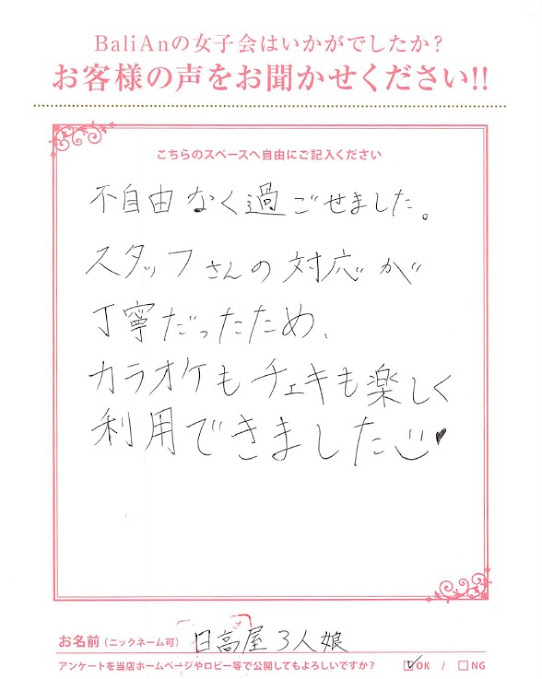 BaliAnの女子会はいかがでしたか?
お客様の声をお聞かせください!!
こちらのスペースへ自由にご記入ください
不自由なく過ごせました。
スタッフさんの対応が
丁寧だったため、
カラオケもチェキも楽しく
利用できました
お名前(ニックネーム可) 日高屋3人娘
アンケートを当店ホームページやロビー等で公開してもよろしいですか? ☑OK / □NG